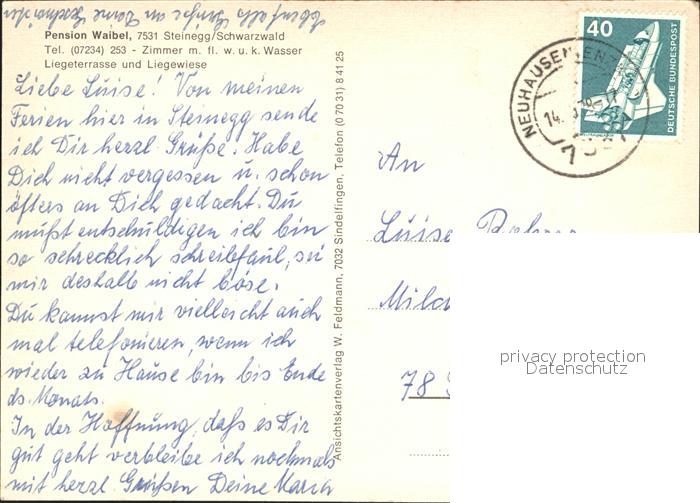 Ebenfalls Grüße an Deine
Pension Waibel, 7531 Steinegg/Schwarzwald
Tel. (07234) 253 - Zimmer m. fl. w. u. k. Wasser
Liegeterrasse und Liegewiese
Liebe Luise! Von meinen
Ferien hier in Steinegg sende
ich Dir herzl. Grüße. Habe
Dich nicht vergessen u. schon
öfters an Dich gedacht. Du
mußt entschuldigen ich bin
so schrecklich schreibfaul, sei
mir deshalb nicht böse.
Du kannst mir vielleicht auch
mal telefonieren, wenn ich
wieder zu Hause bin bis Ende
ds. Monats.
In der Hoffnung, daß es Dir
gut geht verbleibe ich nochmals
mit herzl. Grüßen Deine Maria
Ansichtskartenverlag W. Feldmann, 7032 Sindelfingen, Telefon (07031) 84125
40
DEUTSCHE BUNDESPOST
NEUHAUSEN
14.
An
Luise
78
privacy protection
Datenschutz